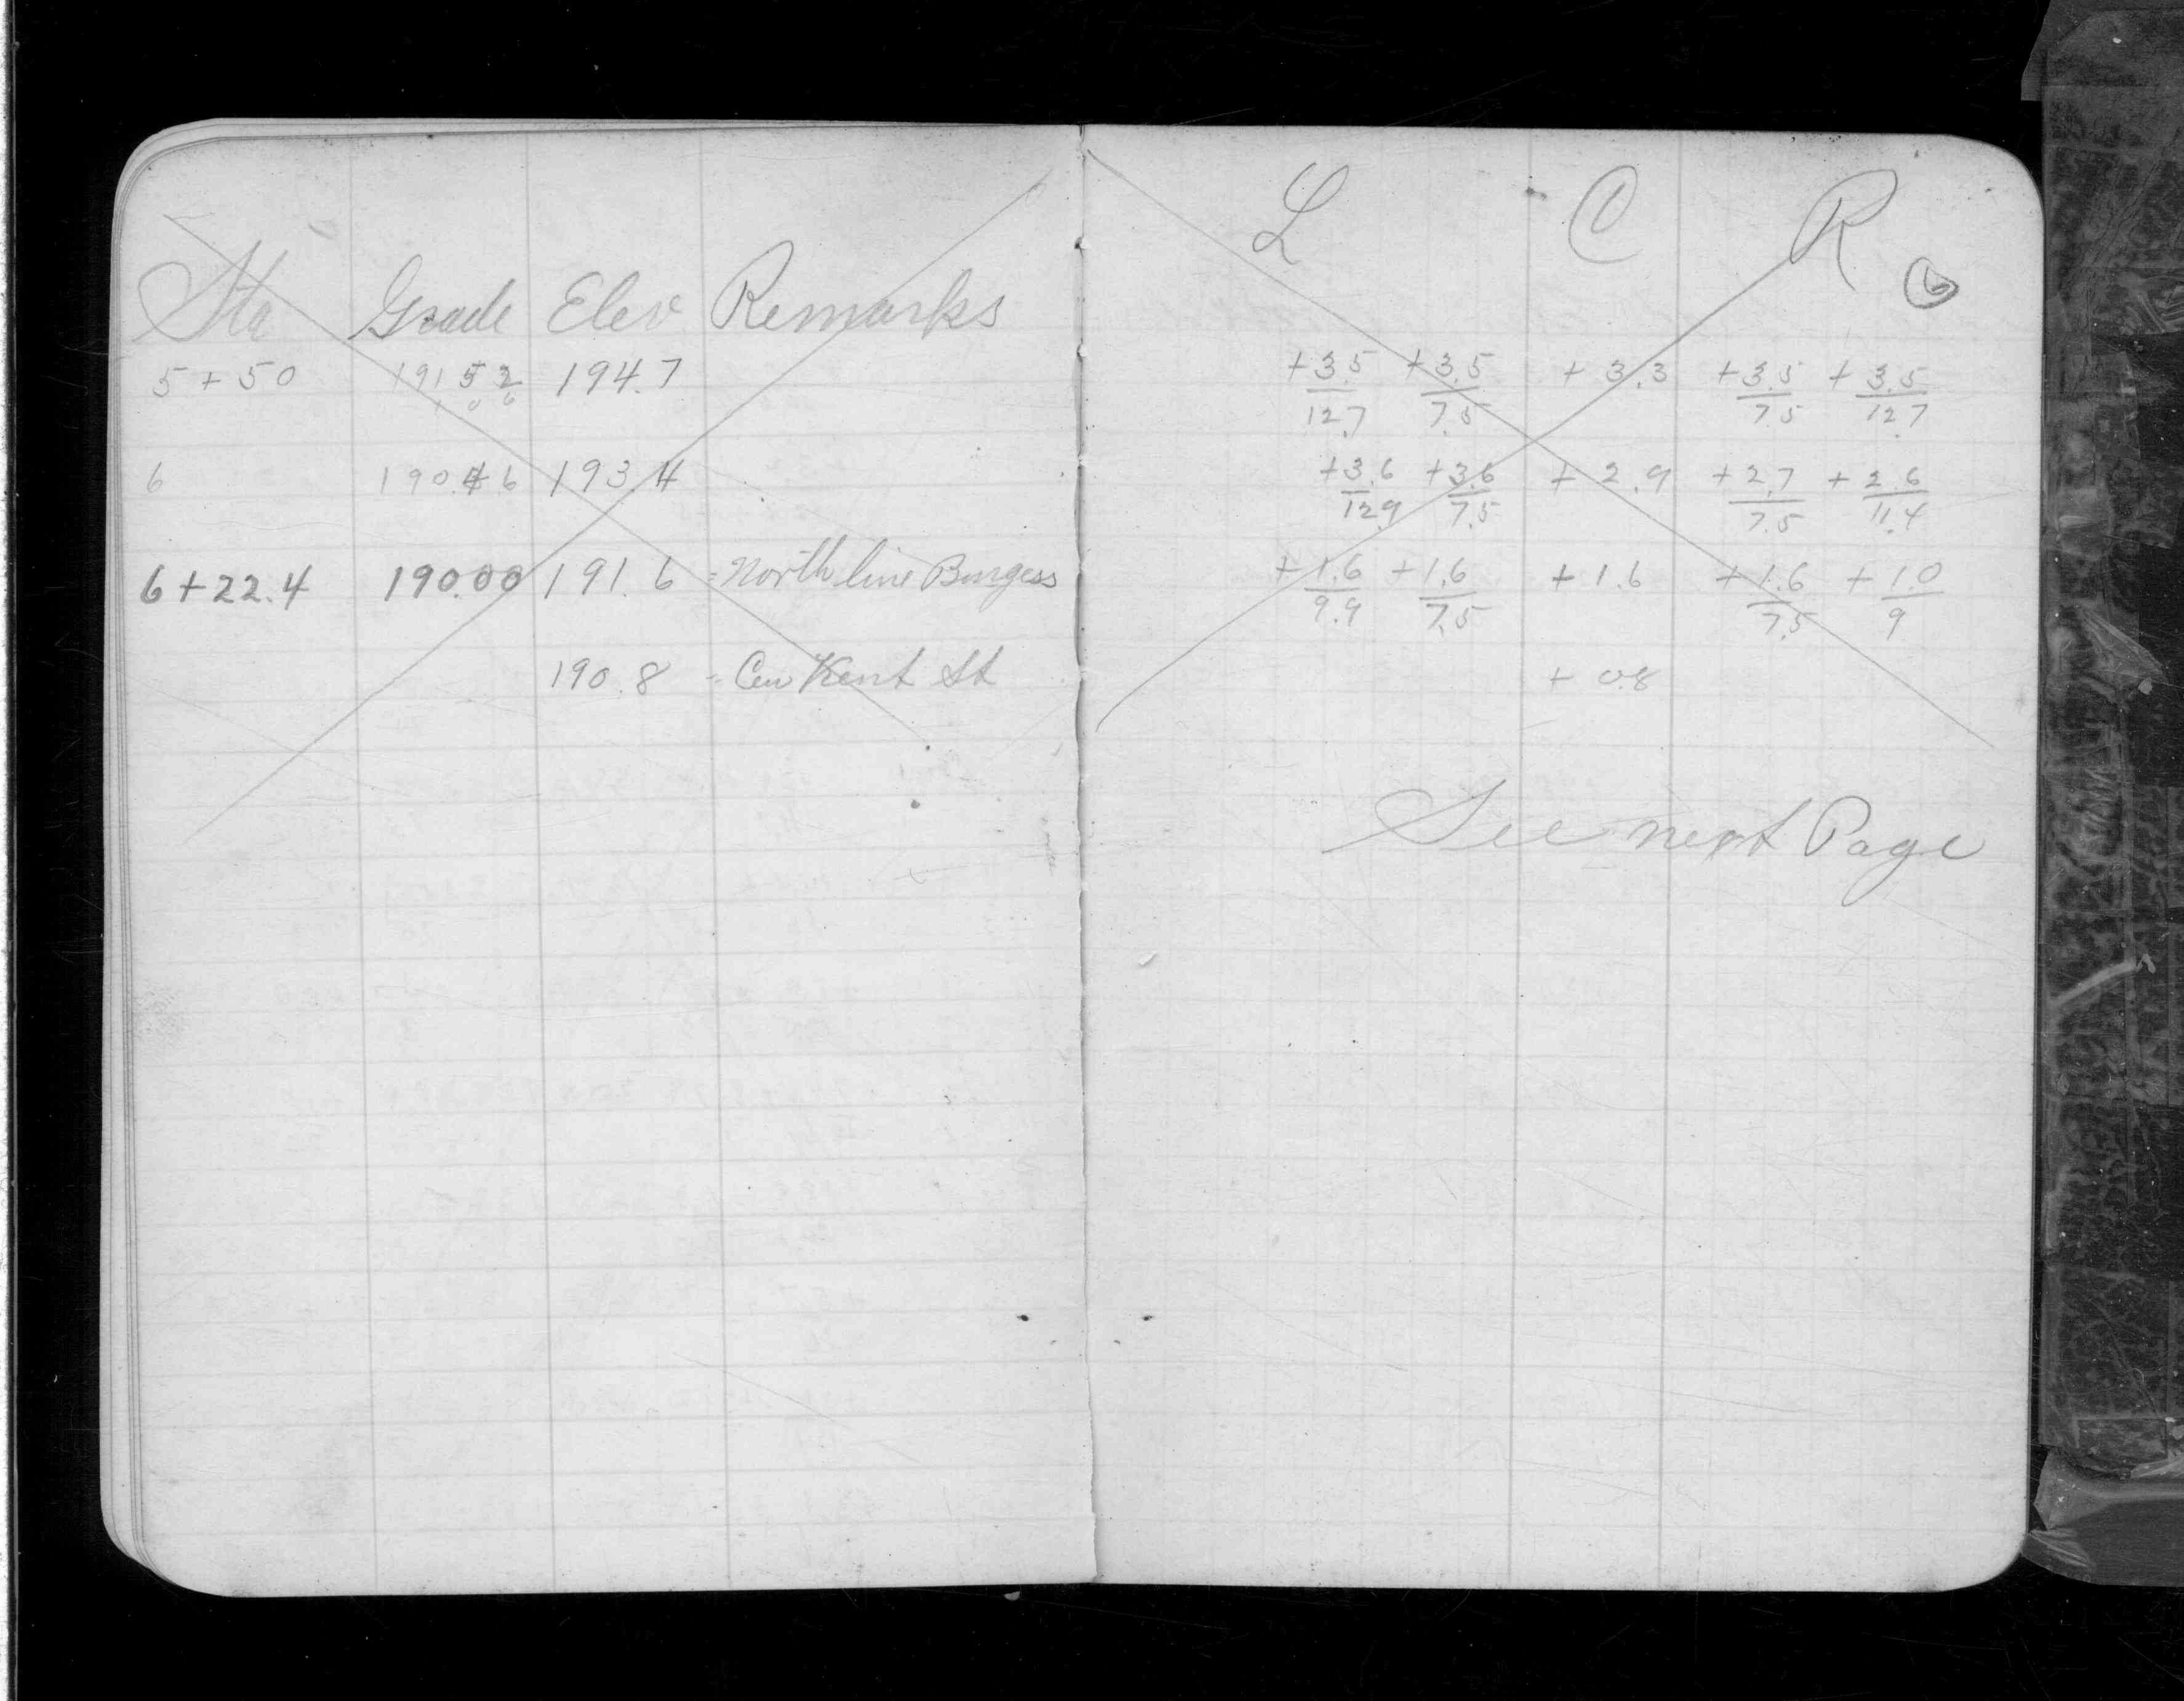 Sta Grade Elev Remarks
5+50 191.52 194.7
6 190.46 193.4
6+22.4 190.00 191.6 = North line Burgess
190.8 = Cen Kent St
L C R 6
+3.5/12.7 +3.5/7.5 +3.3 +3.5/7.5 +3.5/12.7
+3.6/12.9 +3.6/7.5 +2.9 +2.7/7.5 +2.6/11.4
+1.6/9.9 +1.6/7.5 +1.6 +1.6/7.5 +1.0/9
+0.8
See next Page